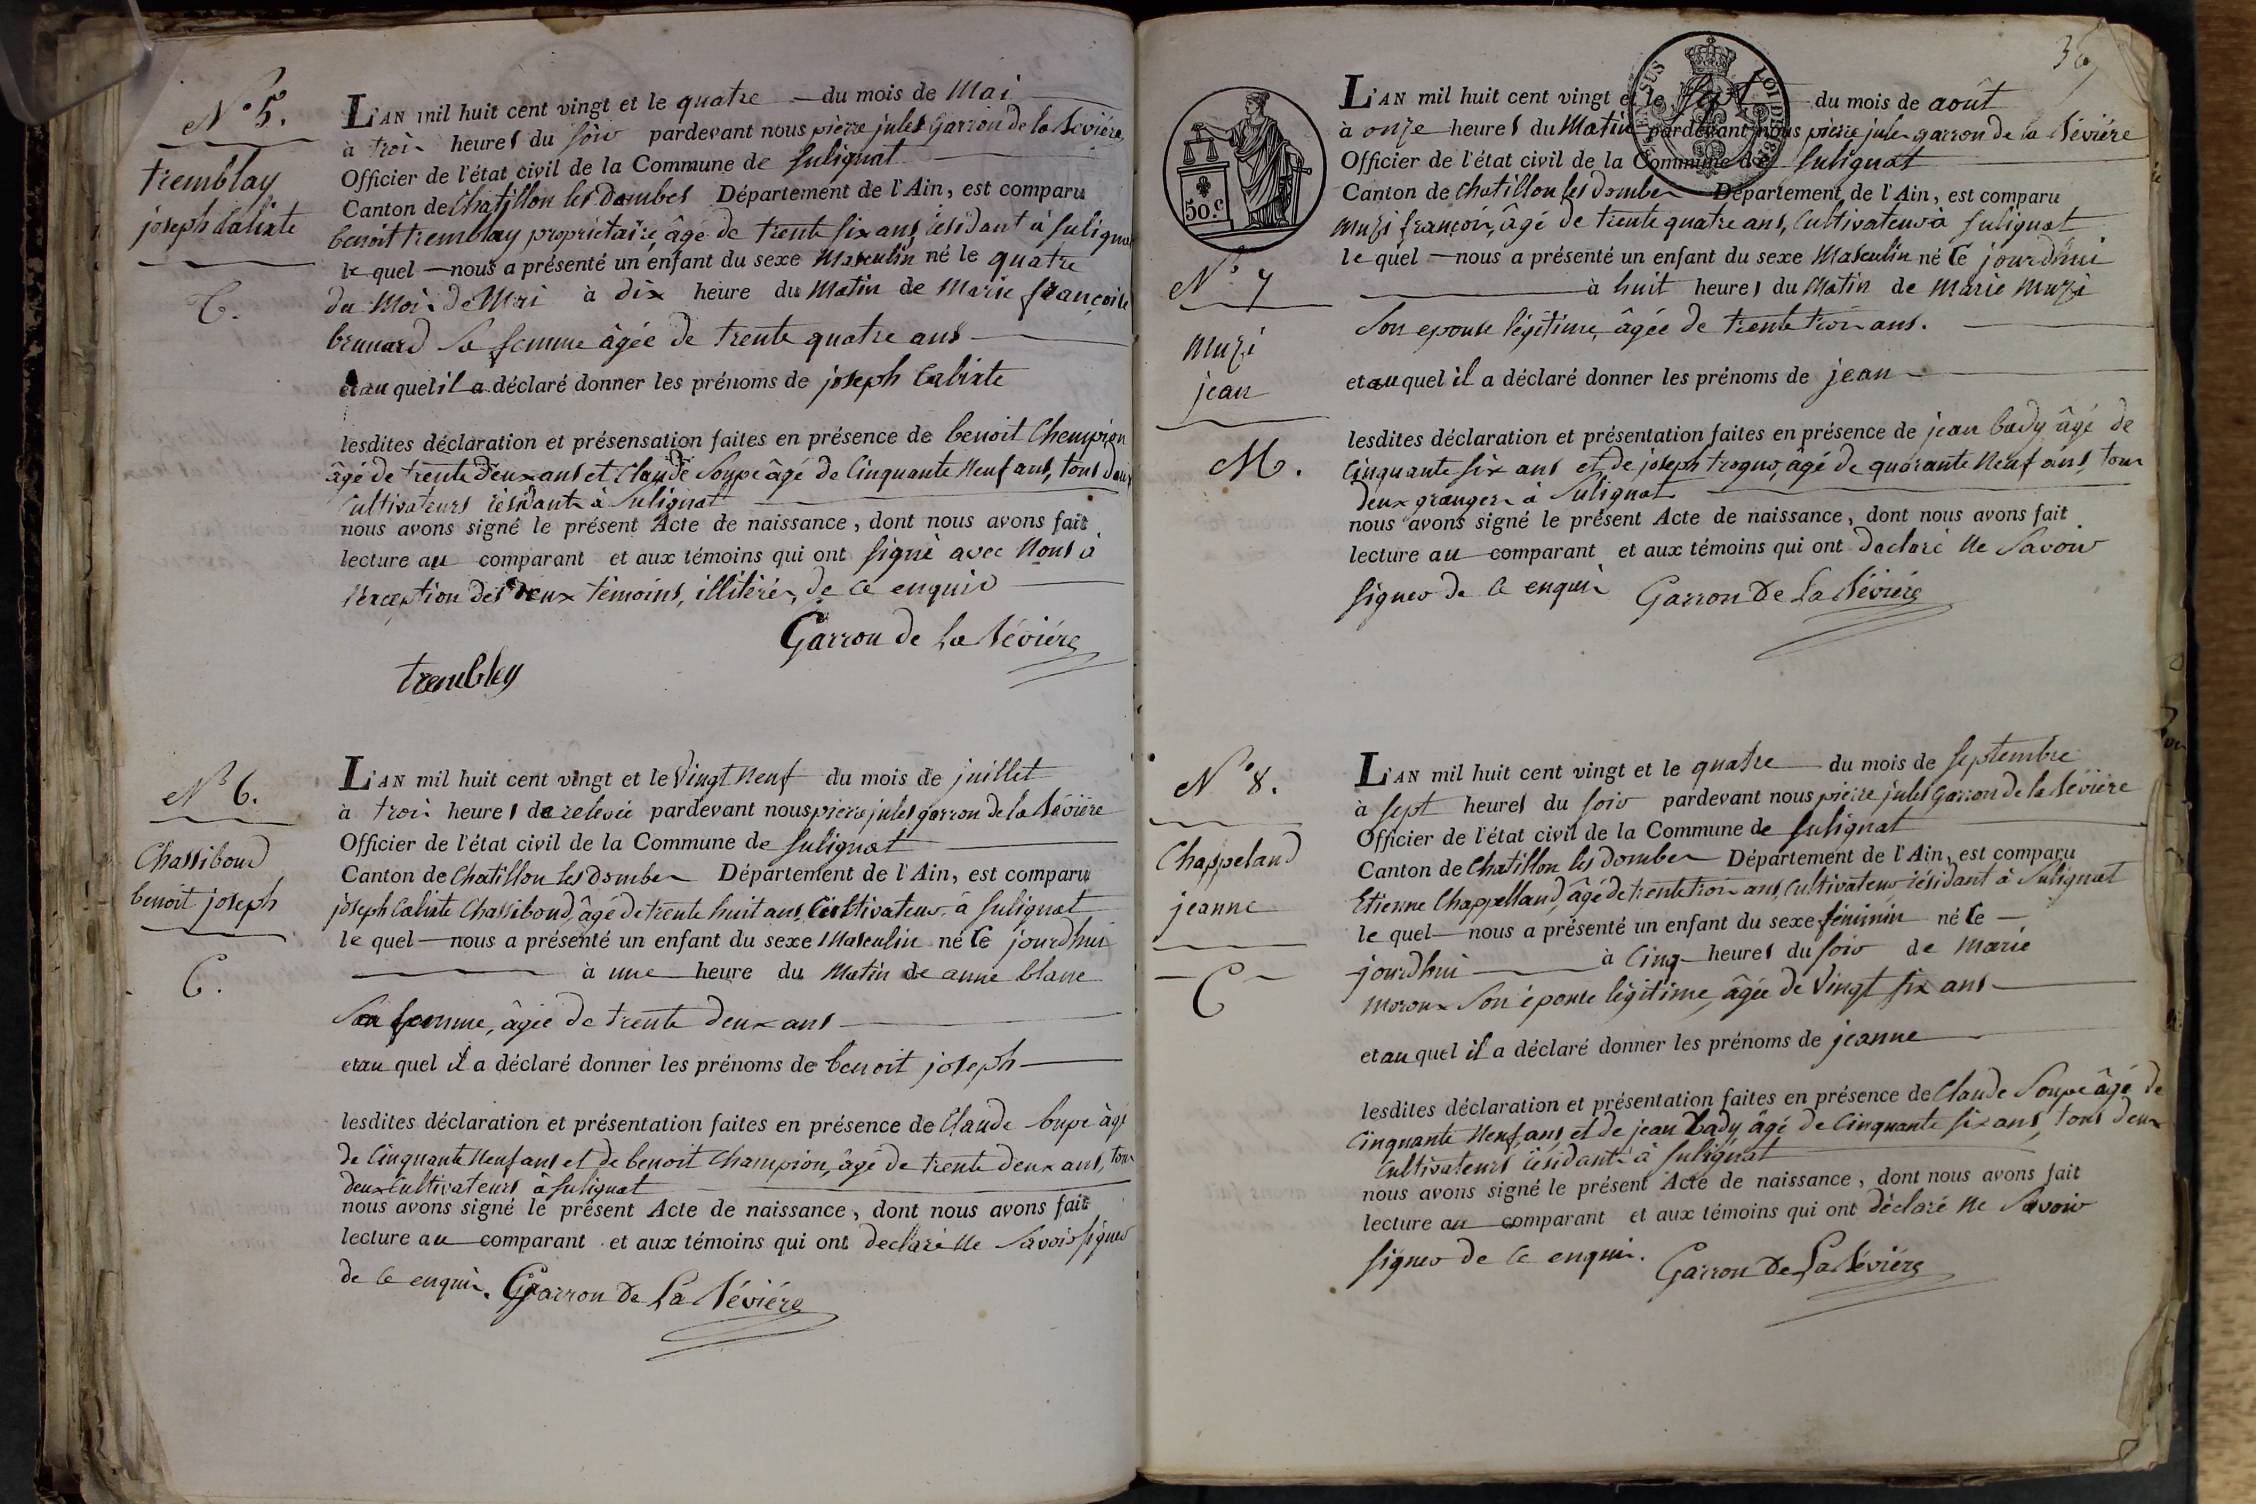 N° 5.
tremblay
joseph Calixte
T.
L'AN mil huit cent vingt et le quatre du mois de Mai
à trois heures du soir pardevant nous pierre jules Garron de la Sévière
Officier de l'état civil de la Commune de Sulignat
Canton de Chatillon les dombes Département de l'Ain, est comparu
benoit tremblay propriétaire, âgé de trente six ans, résidant à Sulignat
le quel nous a présenté un enfant du sexe Masculin né le quatre
du Mois de Mai à dix heure du Matin de Marie françoise
brunard Sa femme âgée de trente quatre ans
et au quel il a déclaré donner les prénoms de joseph Calixte
lesdites déclaration et présensation faites en présence de benoit Champion
âgé de trente deux ans et Claude Soupe âgé de Cinquante Neuf ans, tous deux
Cultivateurs résidants à Sulignat
nous avons signé le présent Acte de naissance, dont nous avons fait
lecture au comparant et aux témoins qui ont signé avec Nous à
l'exception des deux témoins, illitérés, de ce enquis
Garron de La Sévière
trembley
N° 6.
Chassiboud
benoit joseph
C.
L'AN mil huit cent vingt et le Vingt Neuf du mois de juillet
à trois heures de relevée pardevant nous pierre jules garron de la Sévière
Officier de l'état civil de la Commune de Sulignat
Canton de Chatillon les dombes Département de l'Ain, est comparu
joseph Calixte Chassiboud, âgé de trente huit ans, Cultivateur à Sulignat
le quel nous a présenté un enfant du sexe Masculin né Ce jourdhui
à une heure du Matin de anne blanc
Sa femme, âgée de trente deux ans
et au quel il a déclaré donner les prénoms de benoit joseph
lesdites déclaration et présentation faites en présence de Claude Soupe âgé
de Cinquante Neuf ans et de benoit Champion, âgé de trente deux ans, tous
deux Cultivateurs à Sulignat
nous avons signé le présent Acte de naissance, dont nous avons fait
lecture au comparant et aux témoins qui ont declaré Ne Savoir signer
de Ce enquis. Garron De La Sévière
36
50.c
LOI DE
N° 7
muzi
jean
M.
L'AN mil huit cent vingt et le Sept du mois de août
à onze heures du Matin pardevant nous pierre jules garron de la Sévière
Officier de l'état civil de la Commune de Sulignat
Canton de Chatillon les dombes Département de l'Ain, est comparu
muzi françois, âgé de trente quatre ans, Cultivateur à Sulignat
le quel nous a présenté un enfant du sexe Masculin né Ce jourdhui
à huit heures du Matin de Marie Muzi
Son epouse légitime, âgée de trente trois ans.
et au quel il a déclaré donner les prénoms de jean
lesdites déclaration et présentation faites en présence de jean bady âgé de
Cinquante six ans et de joseph trogno, âgé de quarante Neuf ans, tous
deux grangers à Sulignat
nous avons signé le présent Acte de naissance, dont nous avons fait
lecture au comparant et aux témoins qui ont declaré Ne Savoir
signer de Ce enquis Garron De La Sévière
N° 8.
Chappeland
jeanne
C
L'AN mil huit cent vingt et le quatre du mois de Septembre
à sept heures du soir pardevant nous pierre jules Garron de la Sévière
Officier de l'état civil de la Commune de Sulignat
Canton de Chatillon les dombes Département de l'Ain, est comparu
Etienne Chappelland, âgé de trente trois ans, Cultivateur résidant à Sulignat
le quel nous a présenté un enfant du sexe féminin né Ce
jourdhui à Cinq heures du soir de Marie
moroux Son épouse légitime, âgée de Vingt six ans
et au quel il a déclaré donner les prénoms de jeanne
lesdites déclaration et présentation faites en présence de Claude Soupe âgé de
Cinquante Neuf ans, et de jean bady âgé de Cinquante six ans, tous deux
Cultivateurs résidants à Sulignat
nous avons signé le présent Acte de naissance, dont nous avons fait
lecture au comparant et aux témoins qui ont déclaré Ne Savoir
signer de Ce enquis. Garron De La Sévière